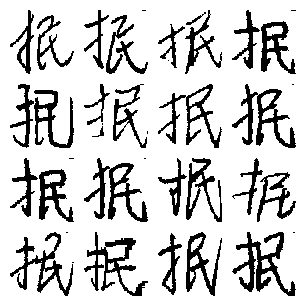 抿抿抿抿
抿抿抿抿
抿抿抿抿
抿抿抿抿